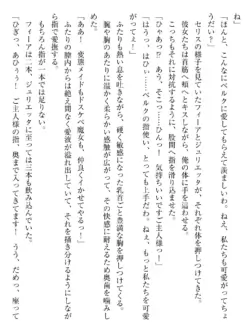 「ほんと、こんなにベルクに愛してもらえて羨ましいわ。ねえ、私たちも可愛がってちょ
セリスの様子を見ていたフィーアとジュリエッタが、それぞれ体を押しつけてきた。
彼女たちは首筋へ頬へとキスしながら、俺の体に手を
こっちもそれに対抗して、股間へ指を滑り込ませた。
「ひゃあっ♡ あっ、そこっ…ひんっ！ 気持ちいいですご主人様っ！」
「はうっ、はひぃ…ベルクの指使い、とっても上手だわ。ねえ、もっと私たちを可愛
がってぇ！」
ふたりとも熱い息を吐きながら、硬く敏感になった乳首ごと豊満な胸を押しつけてくる。
胸や腕のあたりに温かく柔らかい感触が広がって、その快感に耐えるため奥歯を噛み
「ああ、変態メイドもドスケベ魔女も、仲良くイかせてやるっ！」
ふたりの膣内からは絶え間なく愛液が溢れ出していて、それを掻き分けるようにしなが
もちろん指が一本では足りない。
フィーアは二本、ジュリエッタは三本も飲み込んでいた。
「ひぎっ、あひぅう！ ご主人様の指、奥まで入ってきてます！ うう、だめっ、座って